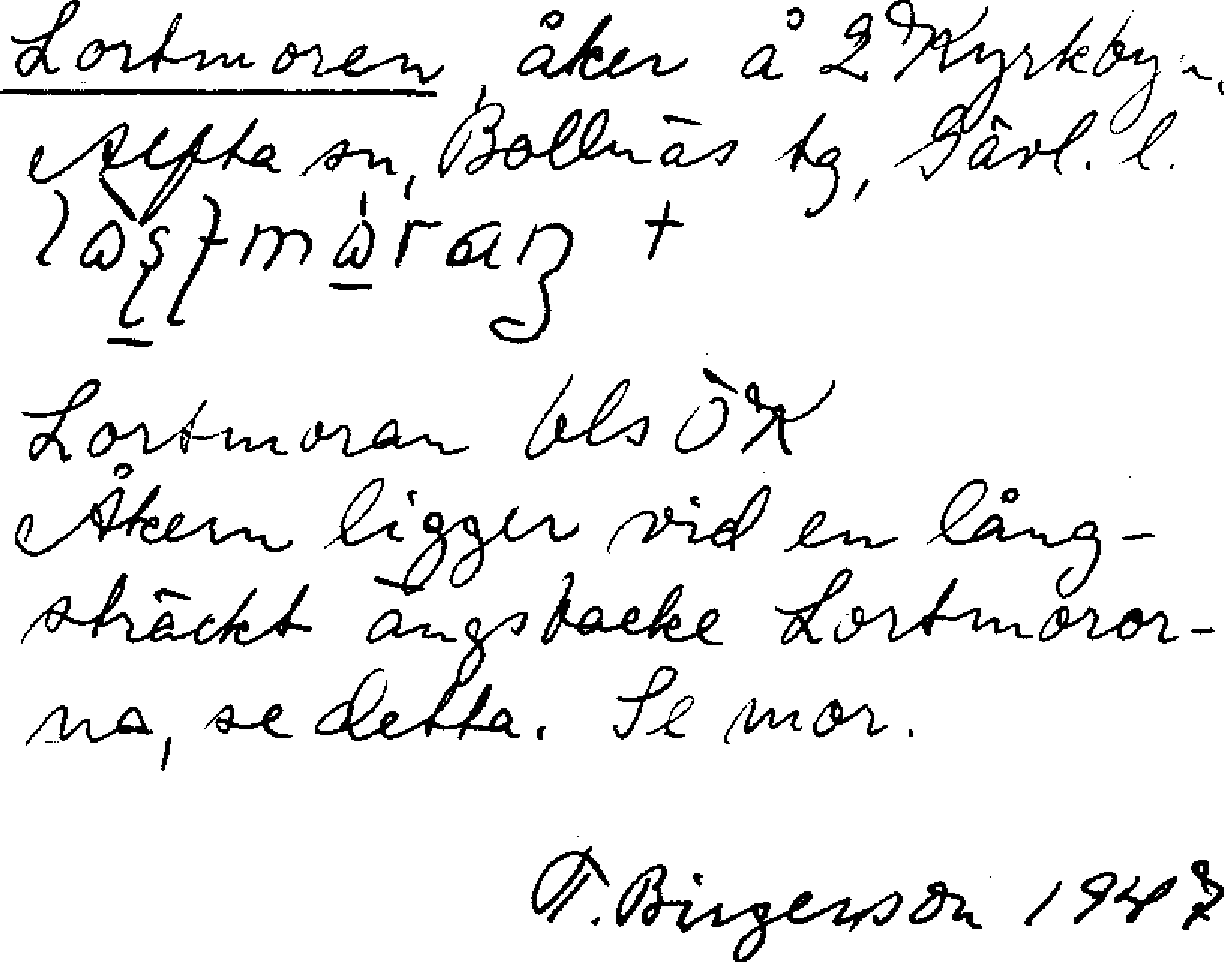 Lortmoren, åker å 2 Kyrkbyn,
Alfta sn, Bollnäs tg, Gävl. l.
+
Lortmoran bls ÖK
Åkern ligger vid en lång-
sträckt ängsbacke Lortmoror-
na, se detta. Se mor.
F. Birgerson 1947